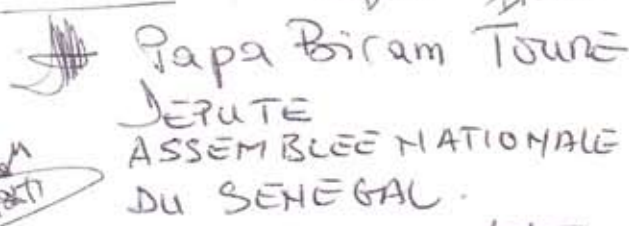 Papa Biram TOURE
DEPUTE
ASSEMBLEE NATIONALE
DU SENEGAL.